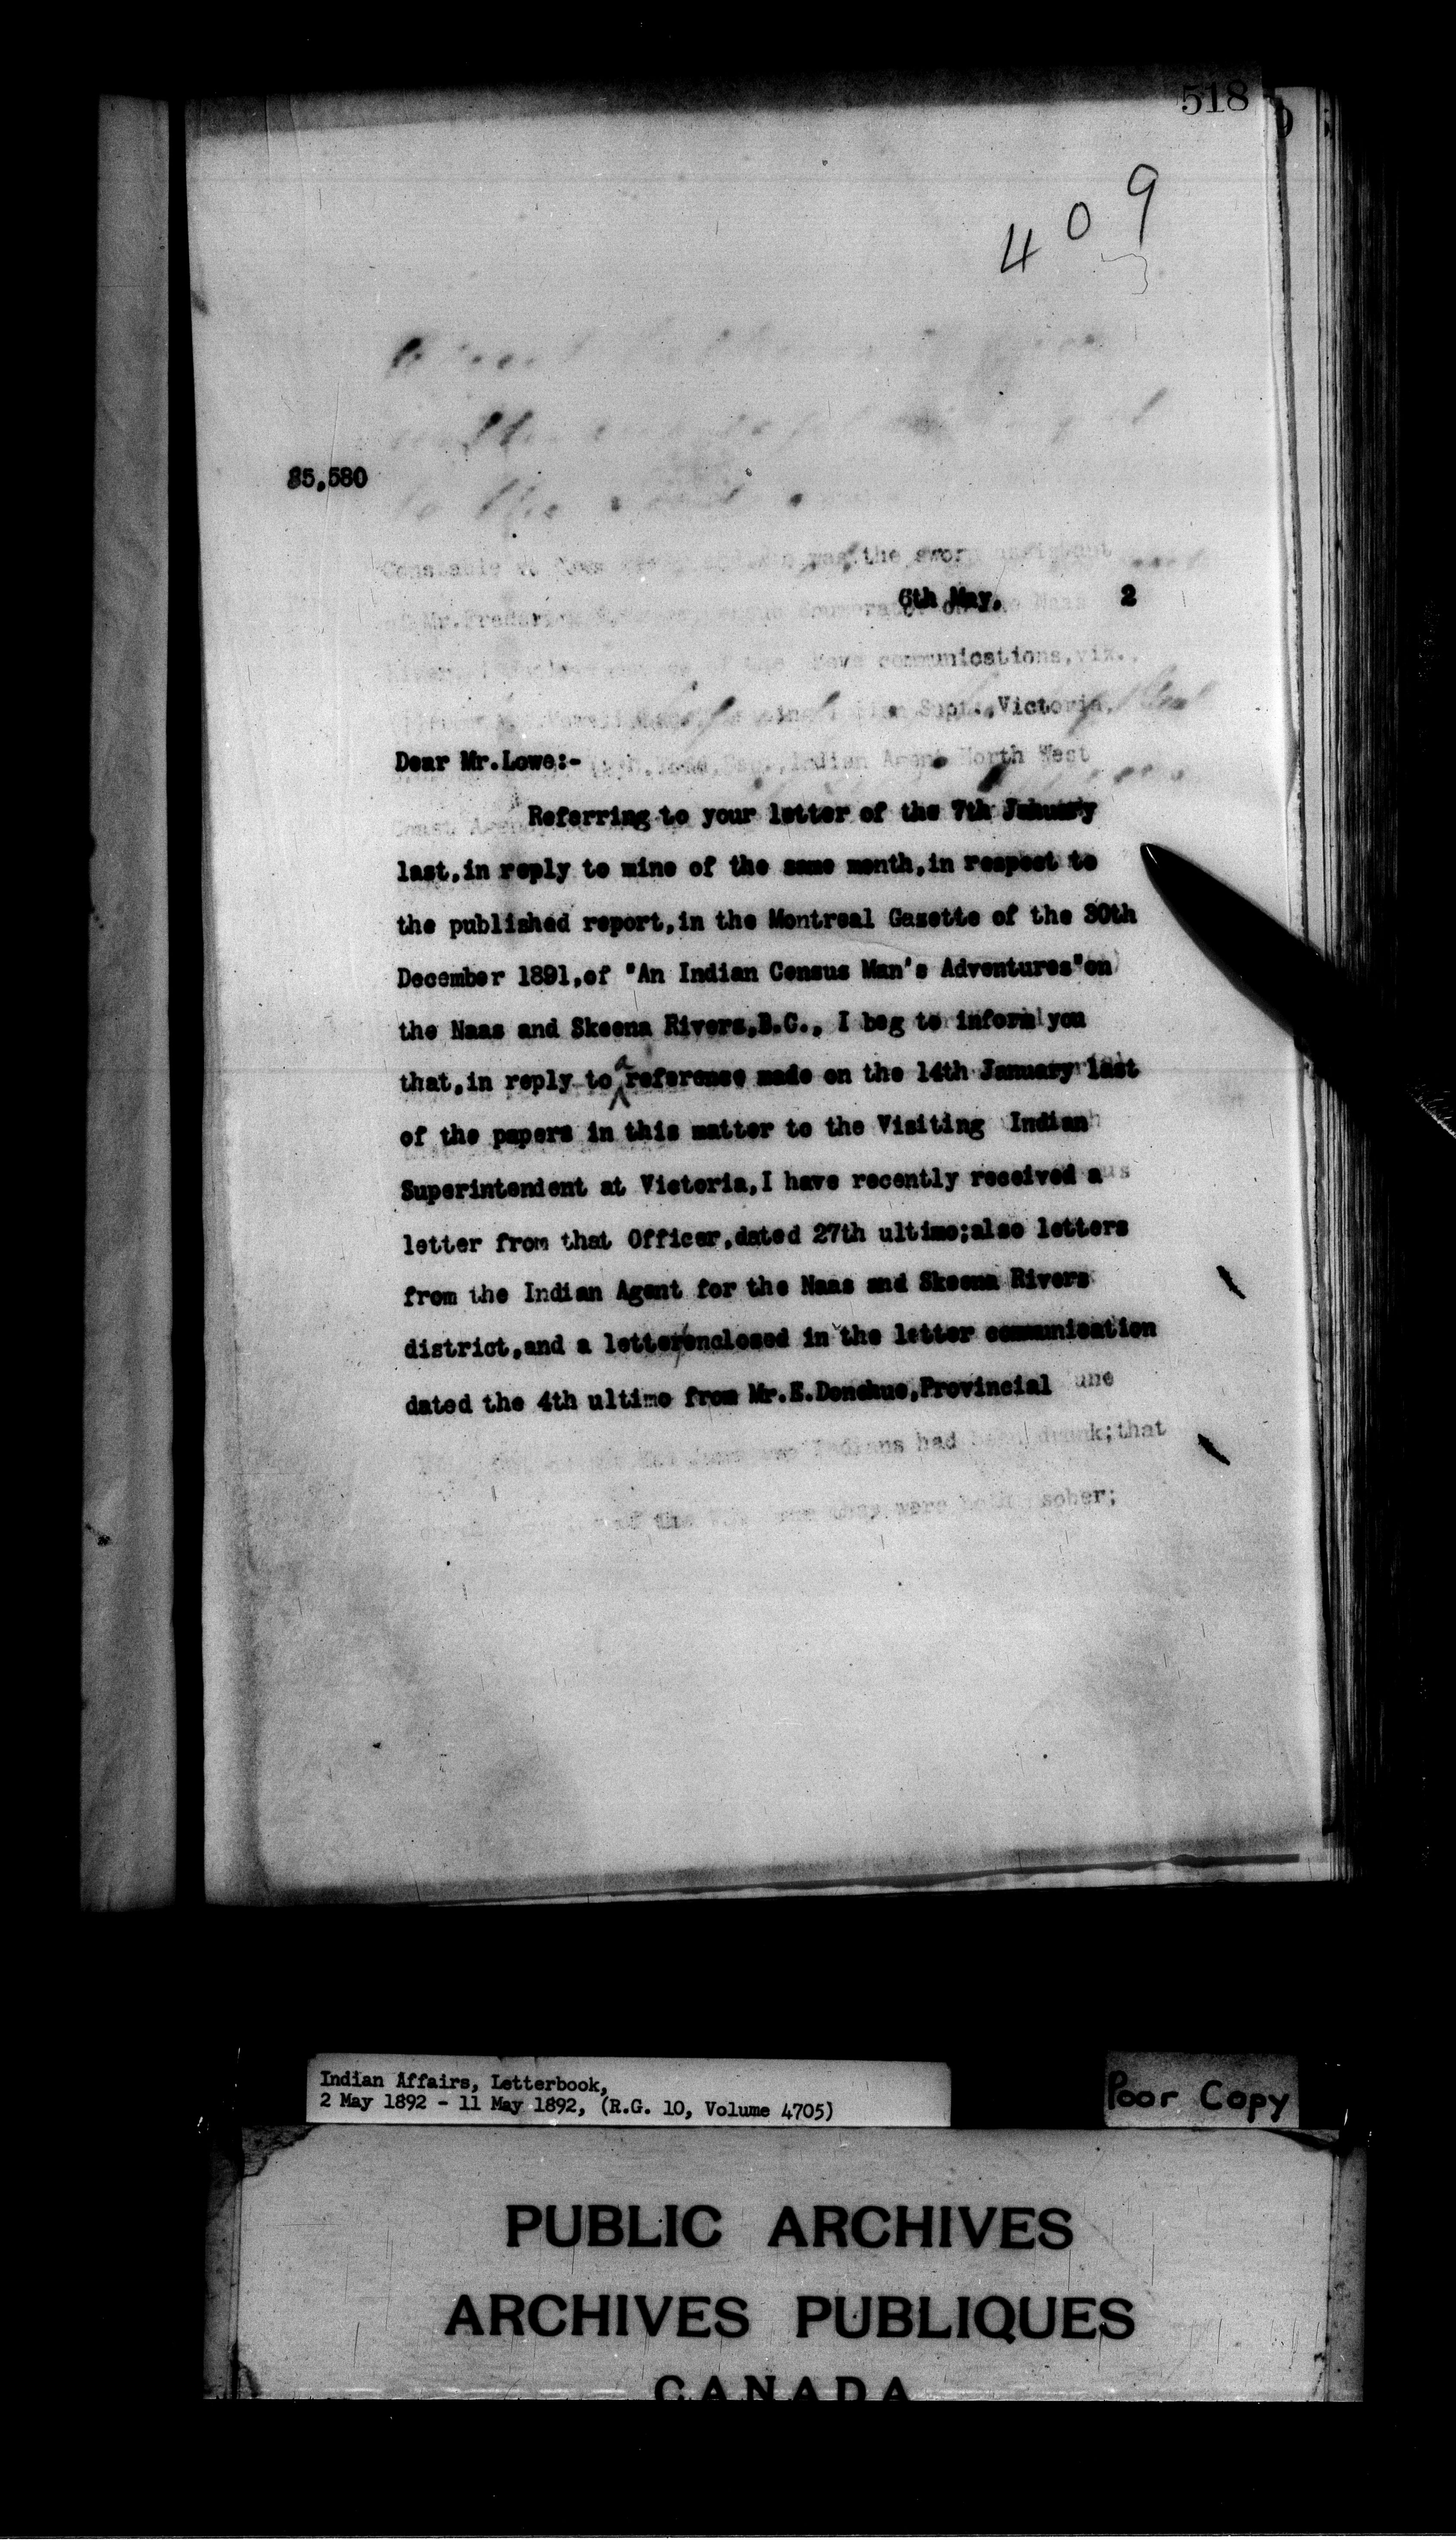 518
409
85,580
Constable was the sworn assistant
6th May, 2
Mr. Frederick Naas
communications, viz.,
Supt., Victoria,
Dear Mr. Lowe:-
Indian Agent North West
Referring to your letter of the 7th January
last, in reply to mine of the same month, in respect to
the published report, in the Montreal Gazette of the 30th
December 1891, of "An Indian Census Man's Adventures" on
the Naas and Skeena Rivers, B.C., I beg to inform you
that, in reply to a reference made on the 14th January last
of the papers in this matter to the Visiting Indian
Superintendent at Victoria, I have recently received a
letter from that Officer, dated 27th ultimo; also letters
from the Indian Agent for the Naas and Skeena Rivers
district, and a letter enclosed in the letter communication
dated the 4th ultimo from Mr. E. Donahue, Provincial
Indians had drunk; that
of the were sober;
Indian Affairs, Letterbook,
2 May 1892 - 11 May 1892, (R.G. 10, Volume 4705)
Poor Copy
PUBLIC ARCHIVES
ARCHIVES PUBLIQUES
CANADA